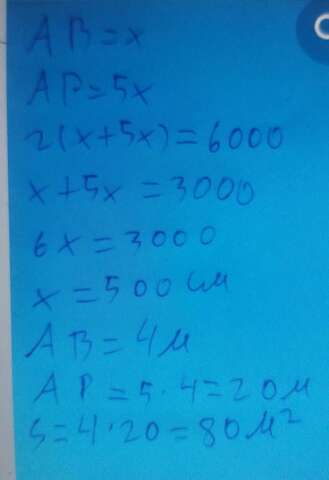 AB=x
AD=5x
2(x+5x)=6000
x+5x=3000
6x=3000
x=500см
AB=4м
AD=5·4=20м
S=4·20=80м²